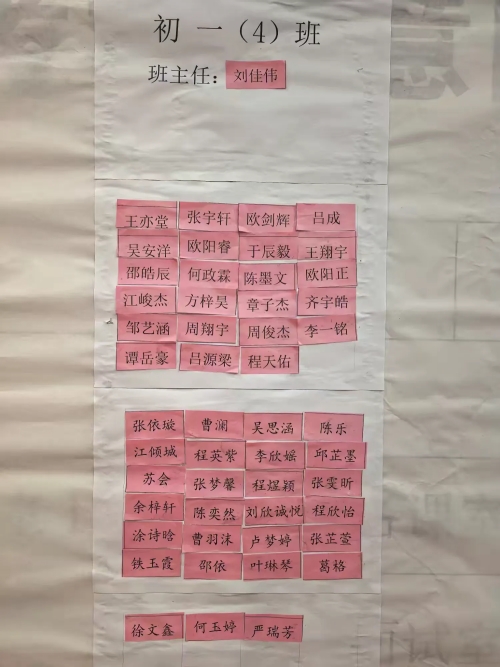 初一（4）班
班主任：刘佳伟
王亦堂 张宇轩 欧剑辉 吕成
吴安洋 欧阳睿 于辰毅 王翔宇
邵皓辰 何政霖 陈墨文 欧阳正
江峻杰 方梓昊 章子杰 齐宇皓
邹艺涵 周翔宇 周俊杰 李一铭
谭岳豪 吕源梁 程天佑
张依璇 曹澜 吴思涵 陈乐
江倾城 程英紫 李欣嫄 邱芷墨
苏会 张梦馨 程煜颖 张雯昕
余梓轩 陈奕然 刘欣诚悦 程欣怡
涂诗晗 曹羽沫 卢梦婷 张芷萱
铁玉霞 邵依 叶琳琴 葛格
徐文鑫 何玉婷 严瑞芳